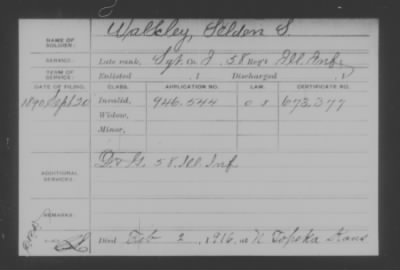 NAME OF SOLDIER: Walkley, Selden S.
SERVICE: Late rank, Sgt Co. I, 58 Reg't Ill. Inf.
TERM OF SERVICE: Enlisted , 1 Discharged , 1
DATE OF FILING. CLASS. APPLICATION NO. LAW. CERTIFICATE NO.
1890 Sept 20 Invalid, 946.544 673.377
Widow,
Minor,
ADDITIONAL SERVICES: D & G. 58 Ill Inf
REMARKS:
Died Feb 2, 1916, at N Topeka Kans